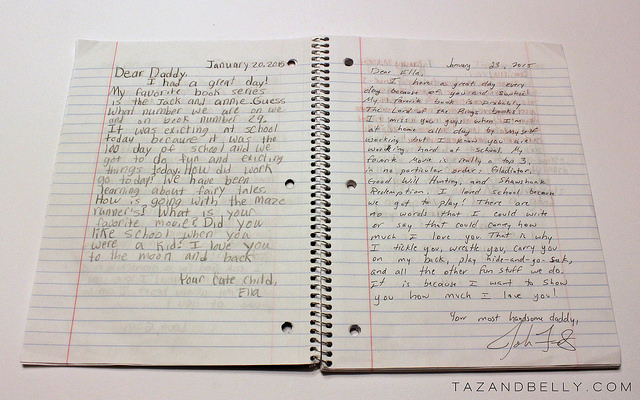 January 20, 2015
Dear Daddy,
I had a great day!
My favorite book series
is the Jack and annie. Guess
what number we are on we
and on book number 29.
It was exicting at school
today because it was the
100 day of school and we
got to do fun and exicting
things today. How did work
go today? We have been
learning about fairy tales.
How is going with the maze
runner's? What is your
favorite movie? Did you
like school when you
were a kid? I love you
to the moon and back
Your cute child,
Ella
January 23, 2015
Dear Ella,
I have a great day every
day because of you and
My favorite book is probably
The Lord of the Rings books
I miss you guys when I'm
at home all day by myself
working but I know you are
working hard at school. My
favorite Movie is really a top 3,
in no particular order: Gladiator,
Good Will Hunting, and Shawshank
Redemption. I loved school because
we got to play! There are
no words that I could write
or say that could convey how
much I love you. That is why
I tickle you, wrestle you, carry you
on my back, play hide-and-go-seek,
and all the other fun stuff we do.
It is because I want to show
you how much I love you!
Your most handsome daddy,
TAZANDBELLY.COM